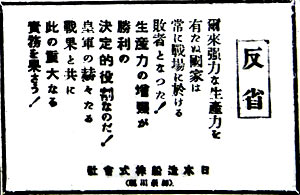 反省
爾來強力な生產力を
有たぬ國家は
常に戰場に於ける
敗者となつた!
生產力の增强が
勝利の
決定的役割なのだ!
皇軍の赫々たる
戰果と共に
此の重大なる
責務を果さう!
日本造船株式會社